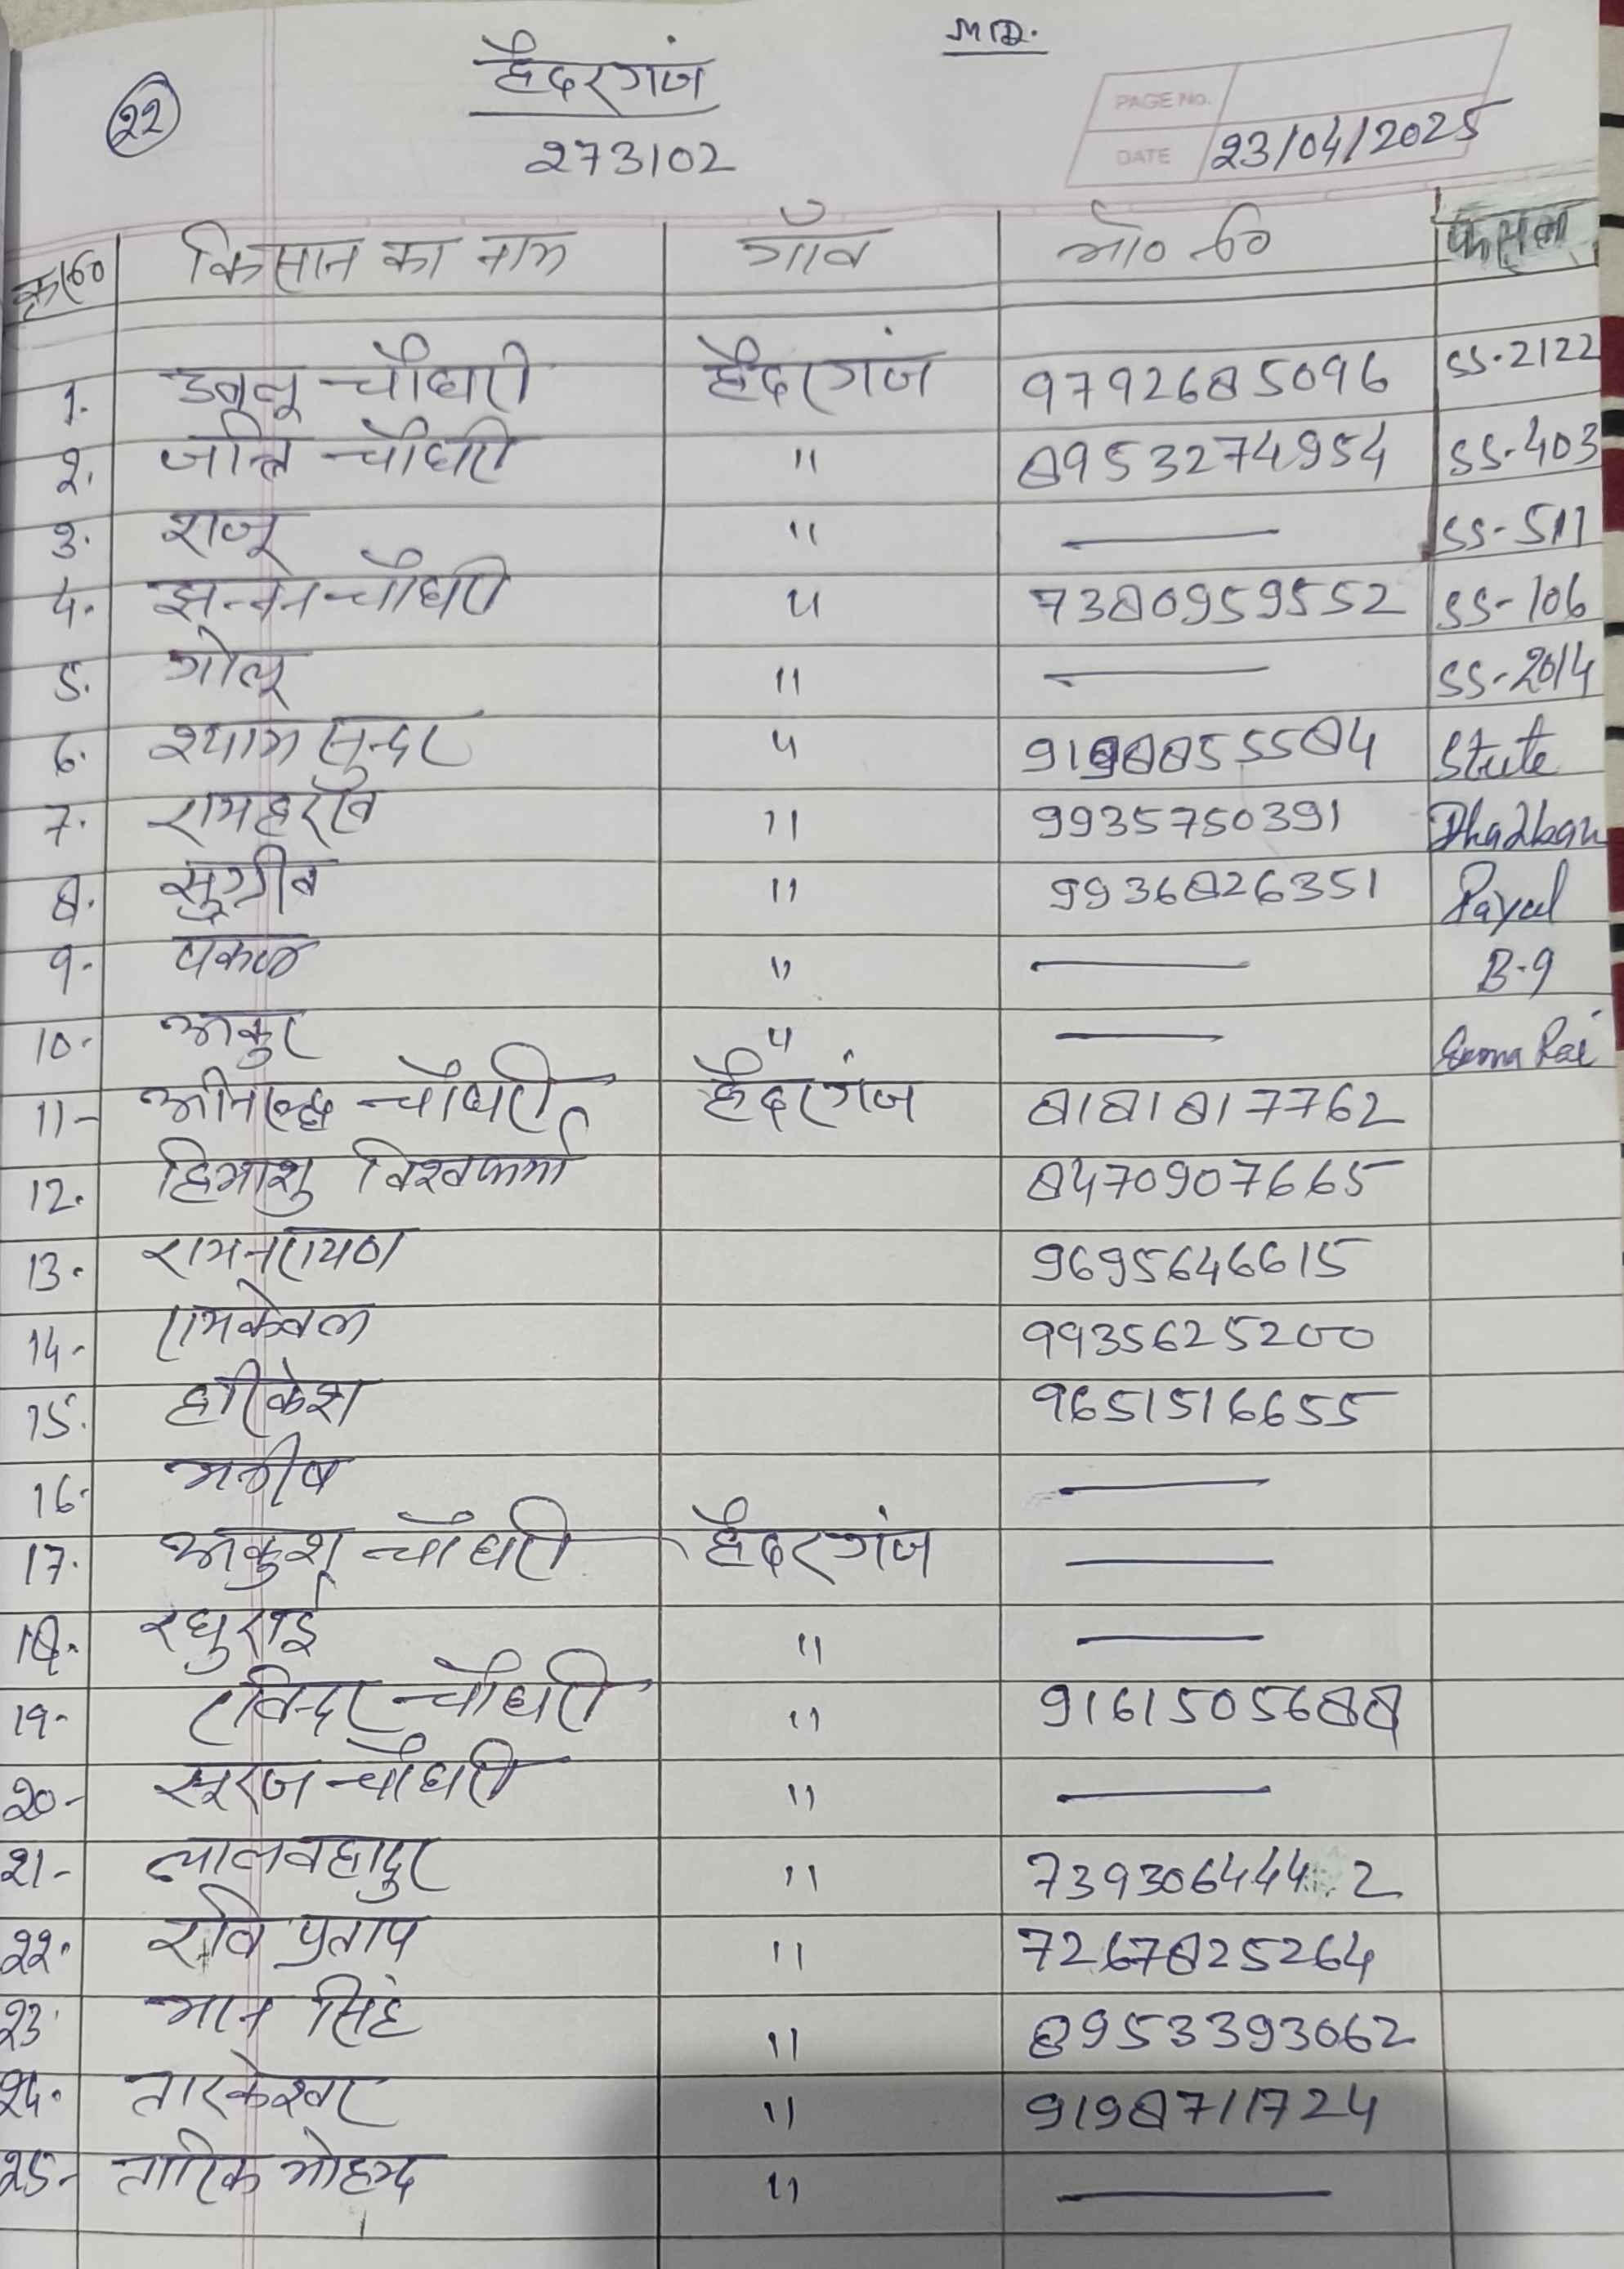 MD.
22
हैदरगंज
273102
PAGE No.
DATE 23/04/2025
क्र०सं० किसान का नाम गाँव मो० नं० फसल
1. डबलू चौधरी हैदरगंज 9792685096 SS-2122
2. जोन्ति चौधरी " 8953274954 SS-403
3. राजू " — SS-511
4. झन्नन चौधरी " 7380959552 SS-106
5. गोलू " — SS-2014
6. श्याम सुन्दर " 9198855584 Stute
7. रामहरख " 9935750391 Dhadkan
8. सुग्रीव " 9936826351 Payal
9. पंकज " — B-9
10- अंकुर " —
11- अनिरुद्ध चौधरी हैदरगंज 8181817762
12. हिमांशु विश्वकर्मा 8470907665
13. रामनरायण 9695646615
14- रामकेवल 9935625200
15. हरिकेश 9651516655
16- मनीष —
17. अंकुश चौधरी हैदरगंज —
18. रघुराई " —
19- रविन्दर चौधरी " 9161505688
20- सूरज चौधरी " —
21- लालबहादुर " 7393064442
22. रवि प्रताप " 7267825264
23. मान सिंह " 8953393062
24. तारकेश्वर " 9198711724
25- तारिक मोहम्द " —